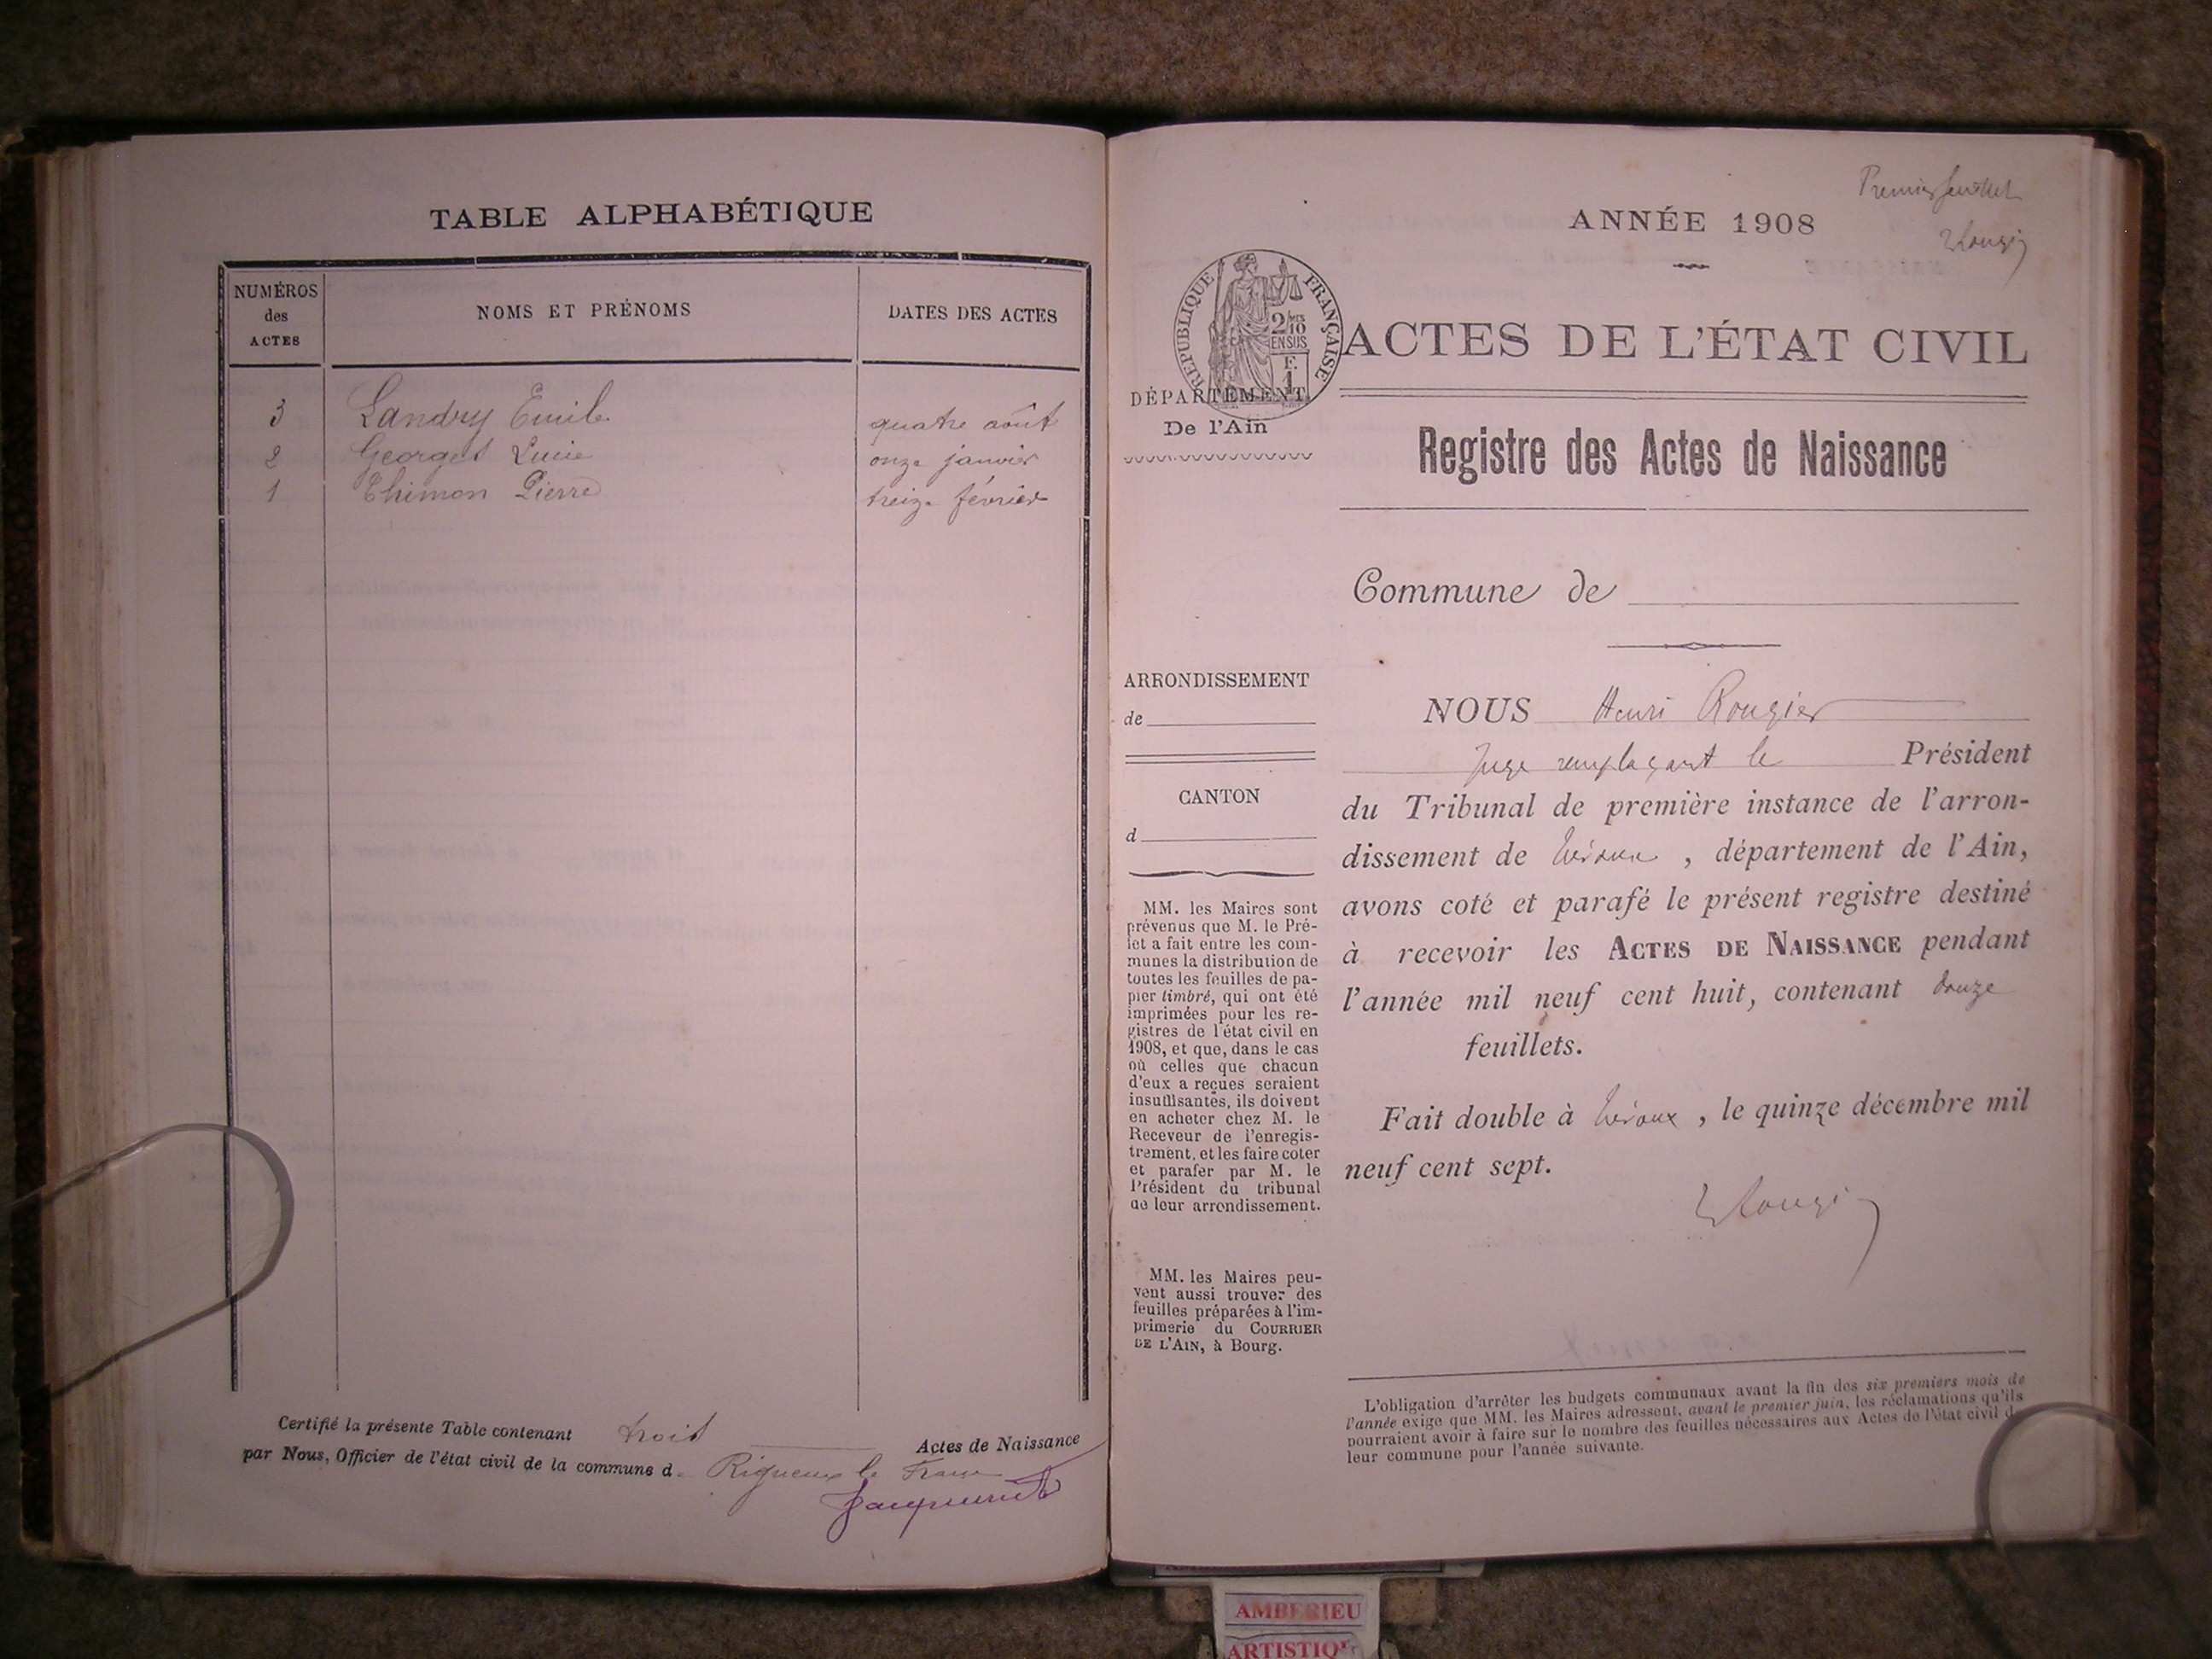 TABLE ALPHABÉTIQUE
NUMÉROS
des
ACTES
NOMS ET PRÉNOMS
DATES DES ACTES
3 Landry Emile quatre août
2 Georget Lucie onze janvier
1 Thimon Pierre treize février
Certifié la présente Table contenant trois Actes de Naissance
par Nous, Officier de l'état civil de la commune d Rigneux le Franc
Premier feuillet
ANNÉE 1908
RÉPUBLIQUE FRANÇAISE
2/10
EN SUS
F.
1
ACTES DE L'ÉTAT CIVIL
DÉPARTEMENT
De l'Ain
Registre des Actes de Naissance
Commune de
ARRONDISSEMENT
de
CANTON
d
MM. les Maires sont
prévenus que M. le Pré-
fet a fait entre les com-
munes la distribution de
toutes les feuilles de pa-
pier timbré, qui ont été
imprimées pour les re-
gistres de l'état civil en
1908, et que, dans le cas
où celles que chacun
d'eux a reçues seraient
insuffisantes, ils doivent
en acheter chez M. le
Receveur de l'enregis-
trement, et les faire coter
et parafer par M. le
Président du tribunal
de leur arrondissement.
MM. les Maires peu-
vent aussi trouver des
feuilles préparées à l'im-
primerie du COURRIER
DE L'AIN, à Bourg.
NOUS Henri Rougier
Juge remplaçant le Président
du Tribunal de première instance de l'arron-
dissement de Trévoux, département de l'Ain,
avons coté et parafé le présent registre destiné
à recevoir les ACTES DE NAISSANCE pendant
l'année mil neuf cent huit, contenant douze
feuillets.
Fait double à Trévoux, le quinze décembre mil
neuf cent sept.
L'obligation d'arrêter les budgets communaux avant la fin des six premiers mois de
l'année exige que MM. les Maires adressent, avant le premier juin, les réclamations qu'ils
pourraient avoir à faire sur le nombre des feuilles nécessaires aux Actes de l'état civil de
leur commune pour l'année suivante.
AMBERIEU
ARTISTIQU